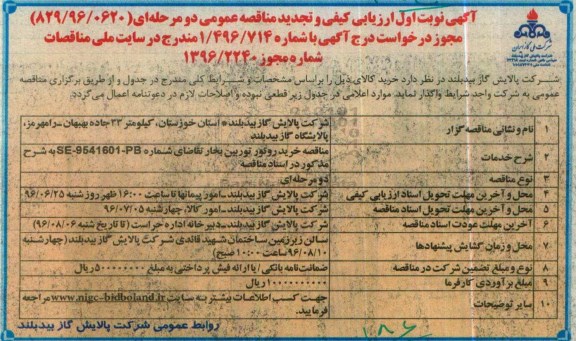 آگهی نوبت اول ارزیابی کیفی و تجدید مناقصه عمومی دو مرحله‌ای (۸۲۹/۹۶/۰۶۲۰)
مجوز درخواست درج آگهی با شماره ۱/۴۹۶/۷۱۴ مندرج در سایت ملی مناقصات
شماره مجوز ۱۳۹۶/۲۲۴۰
شرکت ملی گاز ایران
شرکت پالایش گاز بیدبلند در نظر دارد خرید کالای ذیل را براساس مشخصات و شرایط کلی مندرج در جدول و از طریق برگزاری مناقصه
عمومی به شرکت واجد شرایط واگذار نماید. موارد اعلامی در جدول زیر قطعی نبوده و اصلاحات لازم در دعوتنامه اعمال می‌گردد.
۱ نام و نشانی مناقصه گزار شرکت پالایش گاز بیدبلند* استان خوزستان، کیلومتر ۳۳ جاده بهبهان ـ رامهرمز، پالایشگاه گاز بیدبلند
۲ شرح خدمات مناقصه خرید روتور توربین بخار تقاضای شماره SE-9541601-PB به شرح مذکور در اسناد مناقصه
۳ نوع مناقصه دو مرحله‌ای
۴ محل و آخرین مهلت تحویل اسناد ارزیابی کیفی شرکت پالایش گاز بیدبلند ـ امور پیمانها تا ساعت ۱۶:۰۰ ظهر روز شنبه ۹۶/۰۶/۲۵
۵ محل و آخرین مهلت تحویل اسناد مناقصه شرکت پالایش گاز بیدبلند ـ امور کالا، چهارشنبه ۹۶/۰۷/۰۵
۶ آخرین مهلت عودت اسناد مناقصه شرکت پالایش گاز بیدبلند ـ دبیرخانه اداره حراست (تا تاریخ شنبه ۹۶/۰۸/۰۶)
۷ محل و زمان گشایش پیشنهادها سالن زیرزمین ساختمان شهید قائدی شرکت پالایش گاز بیدبلند (چهارشنبه ۹۶/۰۸/۱۰ ساعت ۱۰:۰۰ صبح)
۸ نوع و مبلغ تضمین شرکت در مناقصه ضمانت‌نامه بانکی / یا ارائه فیش پرداختی به مبلغ
۹ مبلغ برآوردی کارفرما
۱۰ سایر توضیحات جهت کسب اطلاعات بیشتر به سایت www.nigc-bidboland.ir مراجعه فرمایید.
روابط عمومی شرکت پالایش گاز بیدبلند